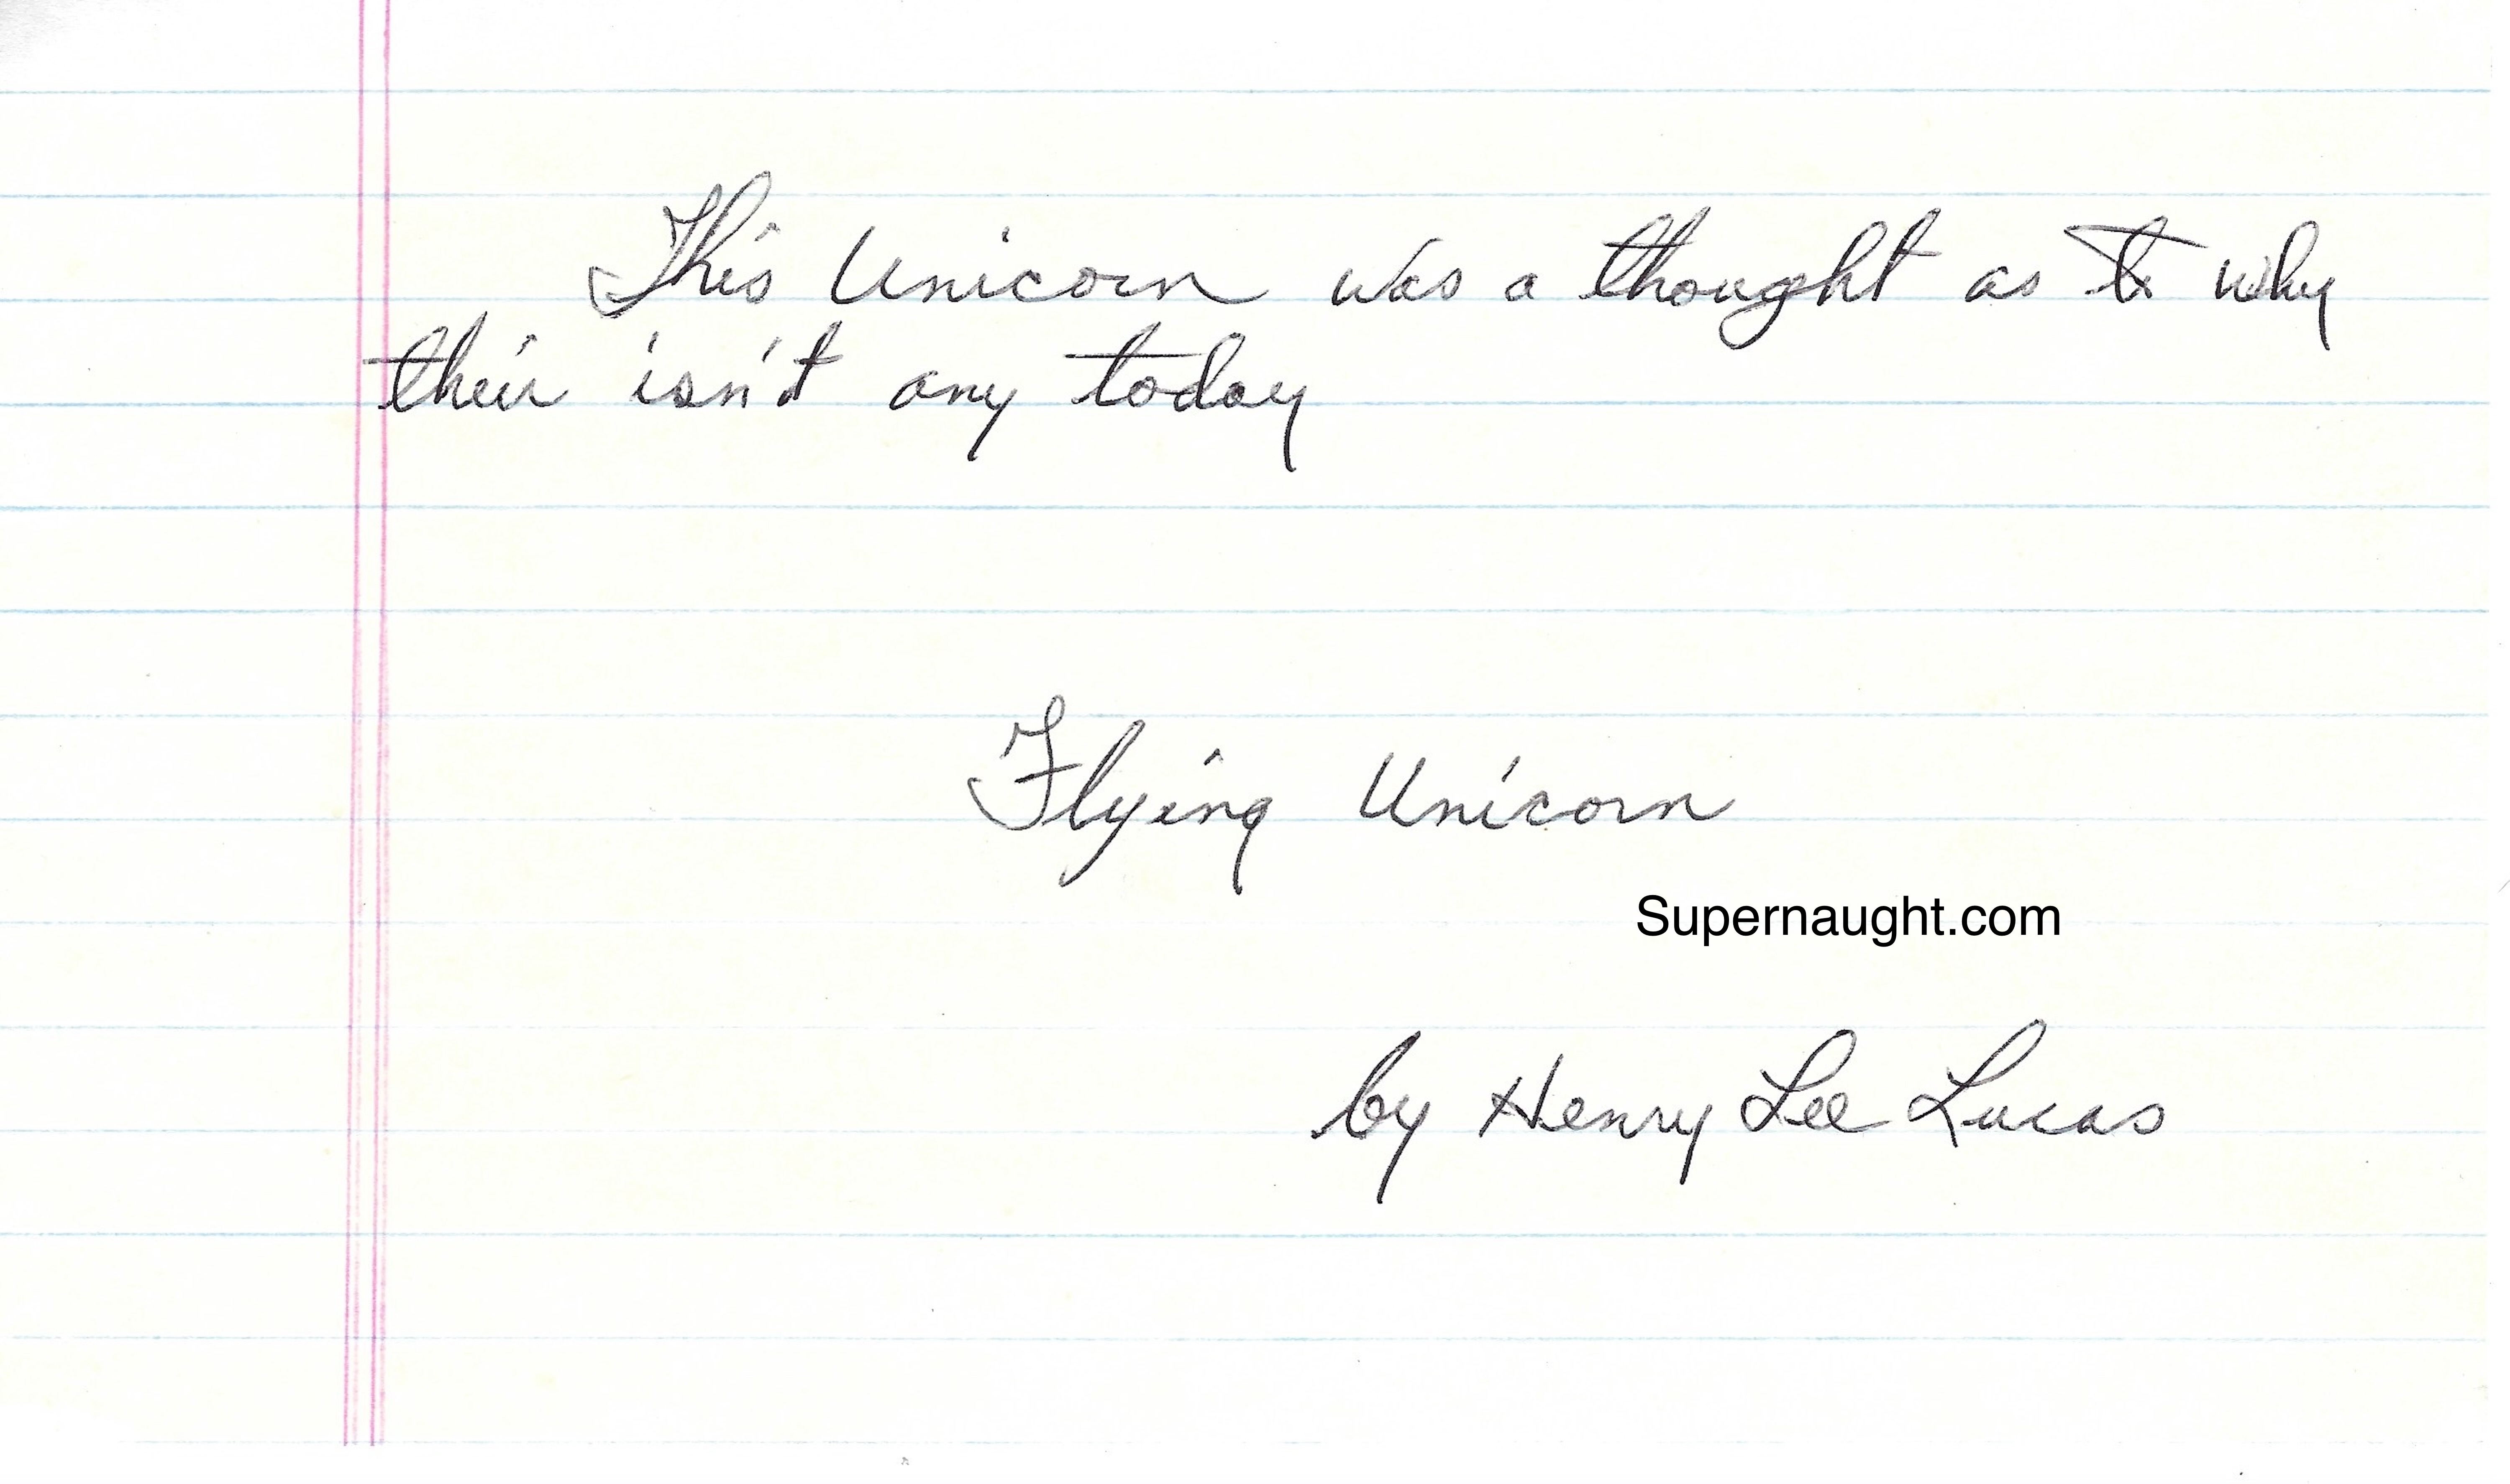 This Unicorn was a thought as to why
their isn't any today
Flying Unicorn
Supernaught.com
by Henry Lee Lucas